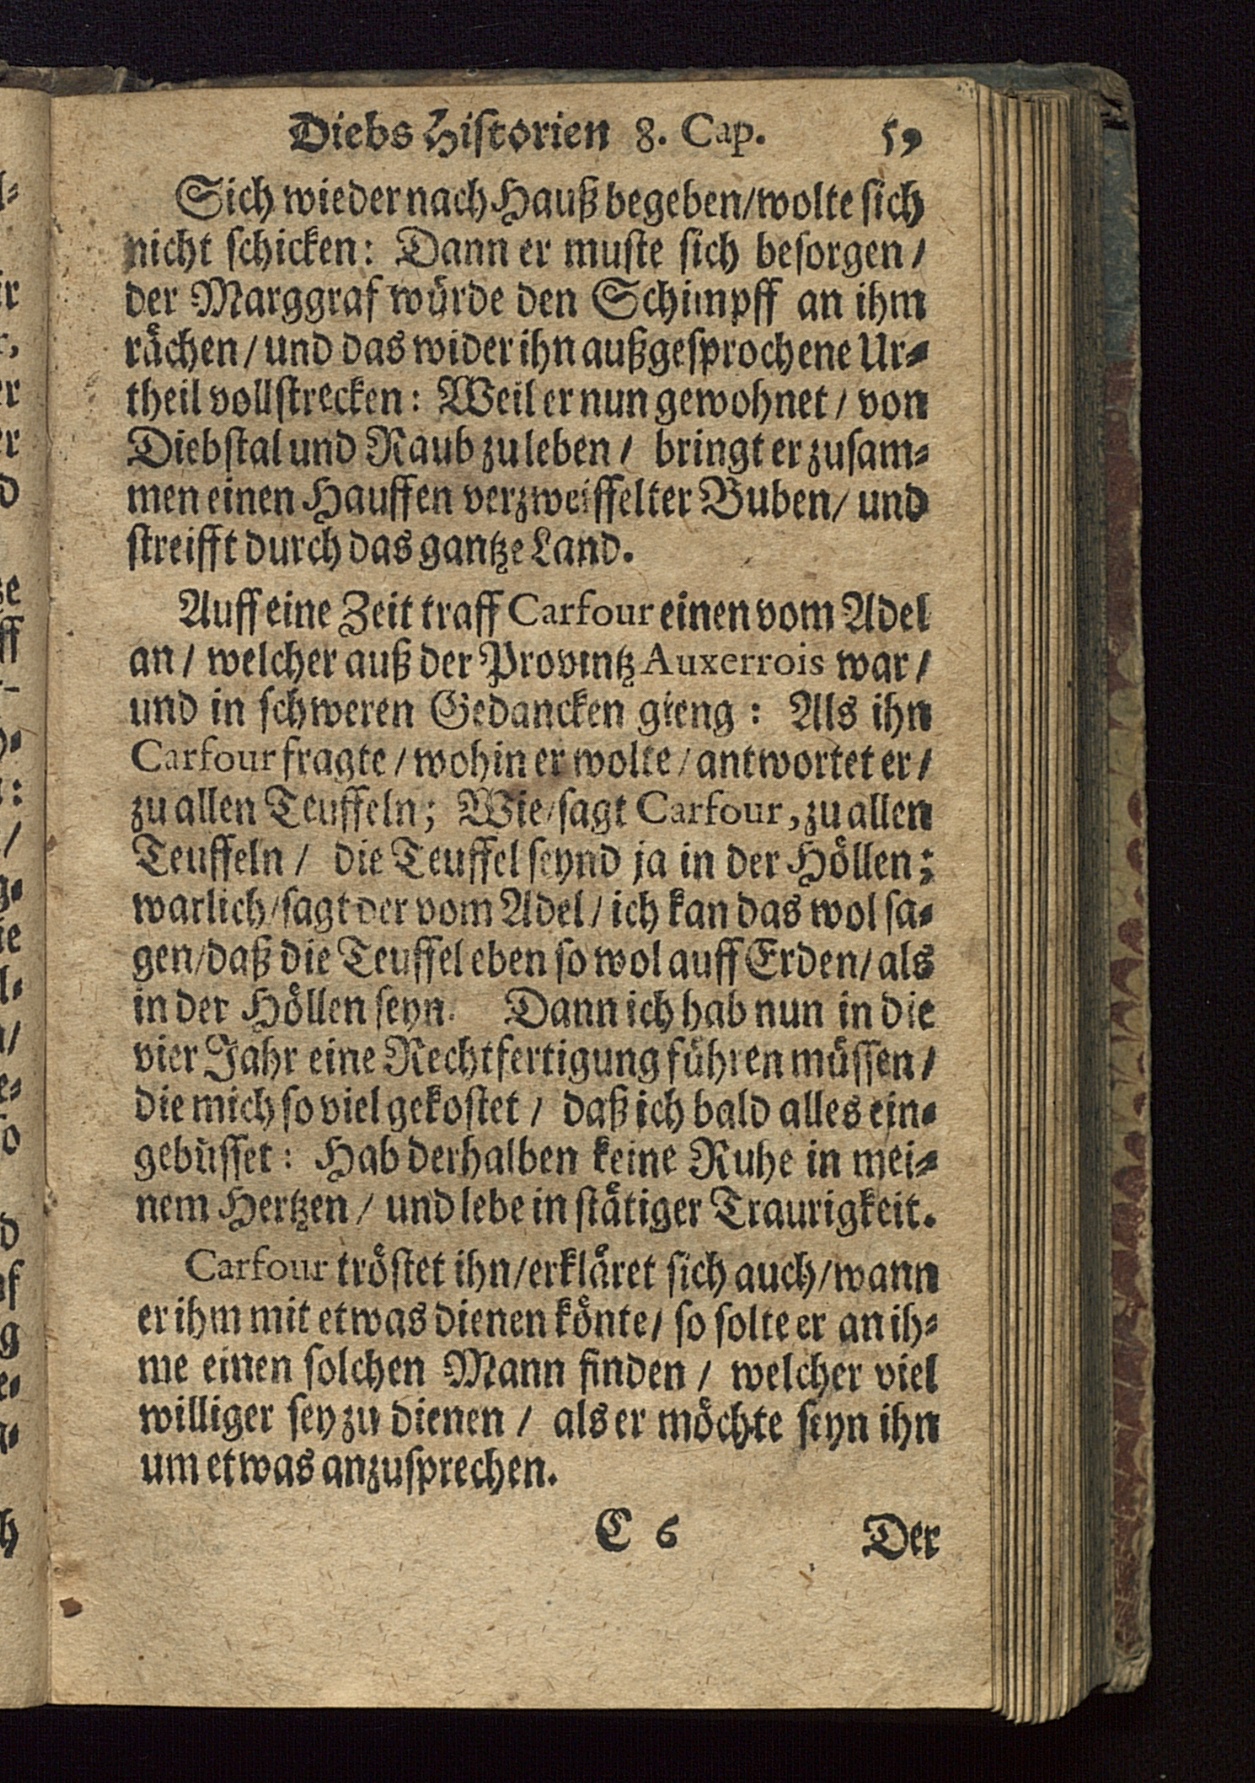 Diebs Historien 8. Cap. 59
Sich wieder nach Hauß begeben/wolte sich
nicht schicken: Dann er muste sich besorgen/
der Marggraf würde den Schimpff an ihm
rächen/und das wider ihn außgesprochene Ur-
theil vollstrecken: Weil er nun gewohnet/ von
Diebstal und Raub zu leben/ bringt er zusam-
men einen Hauffen verzweiffelter Buben/ und
streifft durch das gantze Land.
Auff eine Zeit traff Carfour einen vom Adel
an/ welcher auß der Provintz Auxerrois war/
und in schweren Gedancken gieng: Als ihn
Carfour fragte/wohin er wolte/antwortet er/
zu allen Teuffeln; Wie/sagt Carfour, zu allen
Teuffeln/ die Teuffel seynd ja in der Höllen;
warlich/sagt der vom Adel/ich kan das wol sa-
gen/daß die Teuffel eben so wol auff Erden/als
in der Höllen seyn. Dann ich hab nun in die
vier Jahr eine Rechtfertigung führen müssen/
die mich so viel gekostet/ daß ich bald alles ein-
gebüsset: Hab derhalben keine Ruhe in mei-
nem Hertzen/ und lebe in stätiger Traurigkeit.
Carfour tröstet ihn/erkläret sich auch/wann
er ihm mit etwas dienen könte/ so solte er an ih-
me einen solchen Mann finden/ welcher viel
williger sey zu dienen/ als er möchte seyn ihn
um etwas anzusprechen.
C 6 Der